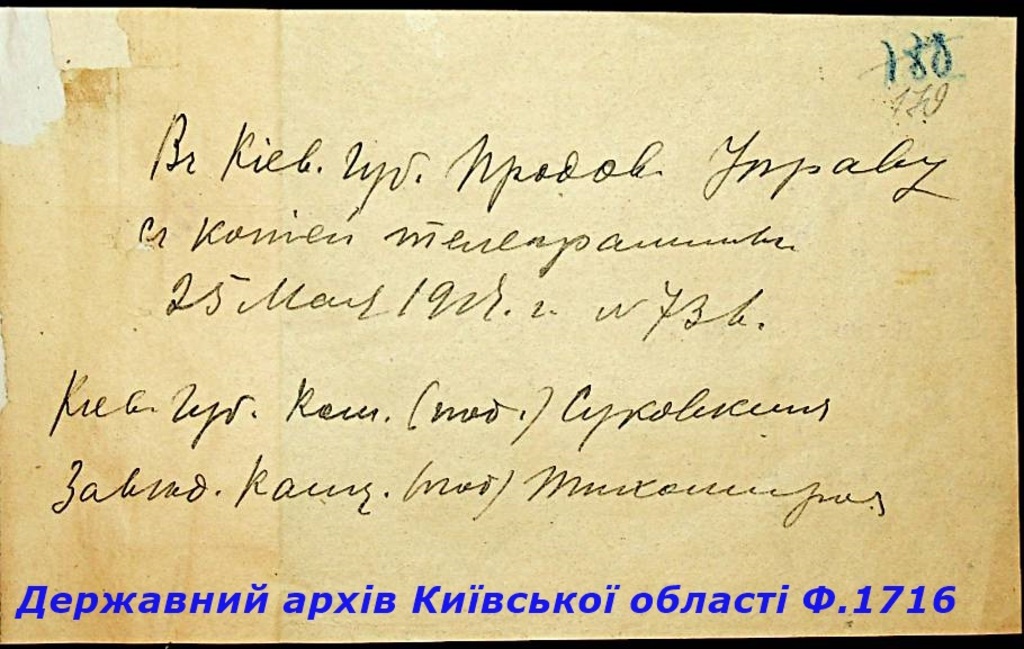 180
179
Въ Кіев. Губ. Продов. Управу
съ копіей телеграммы
25 Мая 1917. г. N 73
Кіев. Губ. Ком. (под.) Суковкинъ
Завед. Канц. (под)
Державний архів Київської області Ф.1716